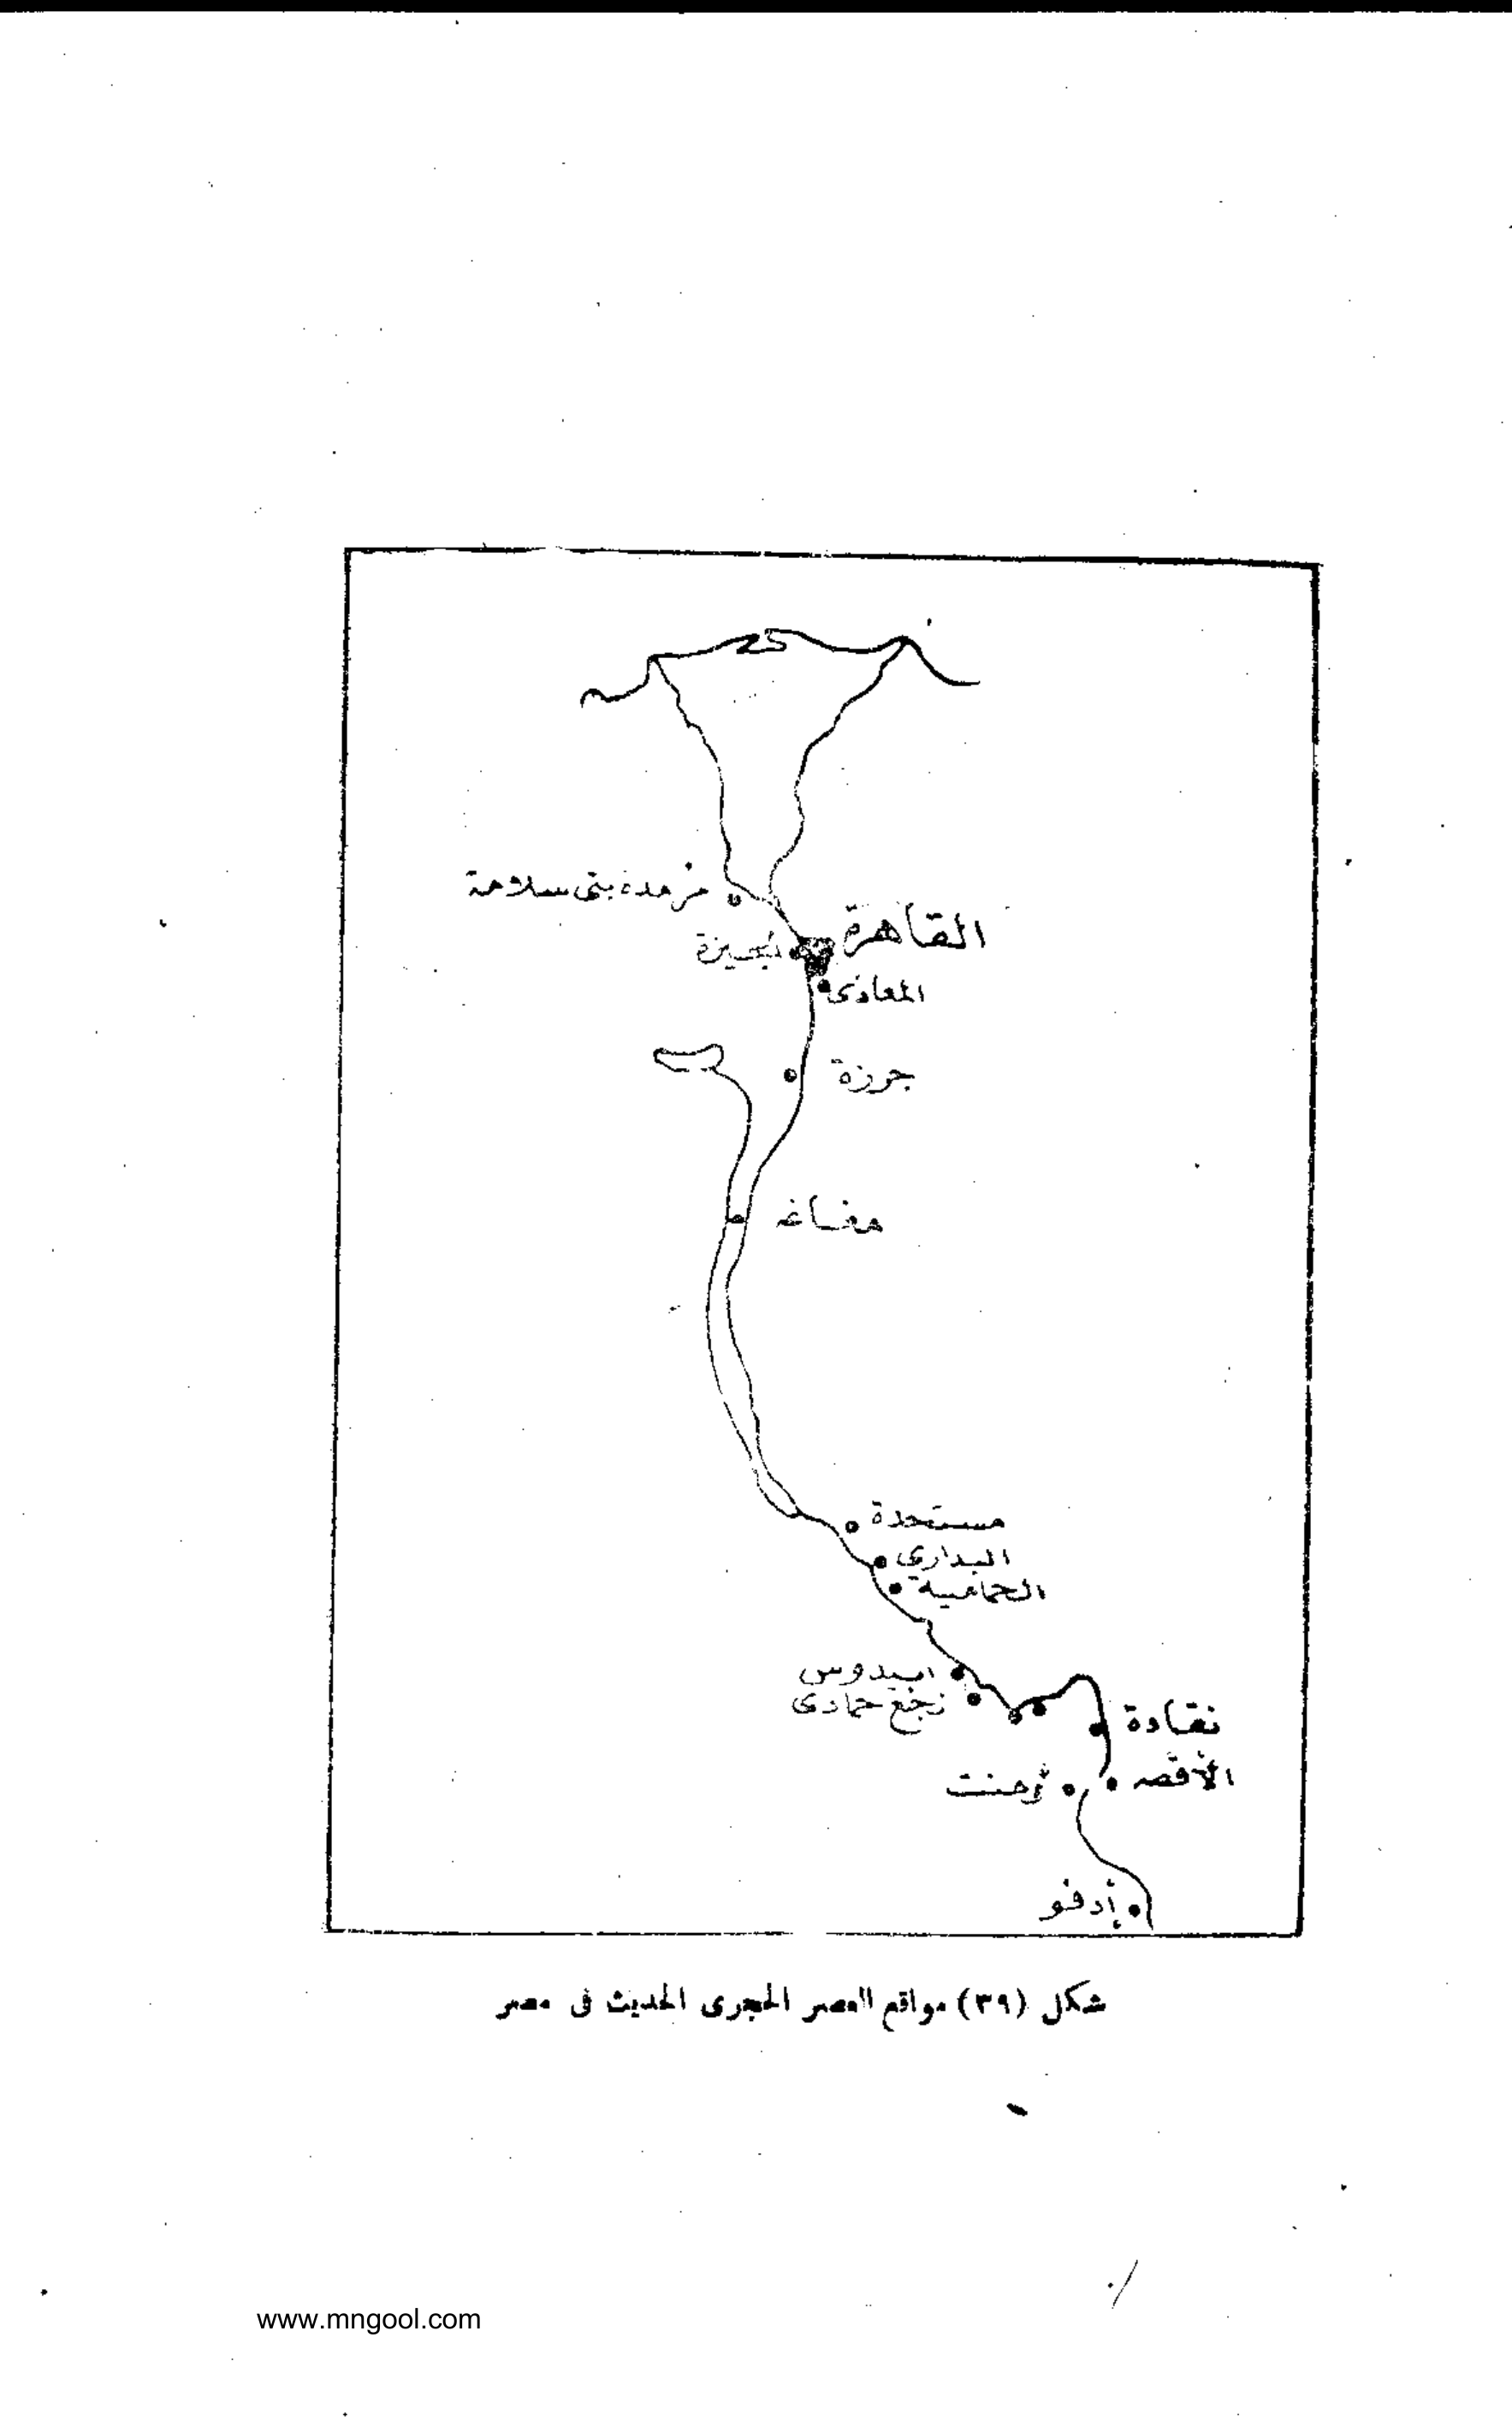 مرمدة بنى سلامة
القاهرة
الجيزة
المعادى
جرزة
مغاغه
مستجدة
البدارى
الحمامية
ابيدوس
نجع حمادى
نقادة
الأقصر
أرمنت
إدفو
شكل (٣٩) مواقع العصر الحجرى الحديث فى مصر
www.mngool.com